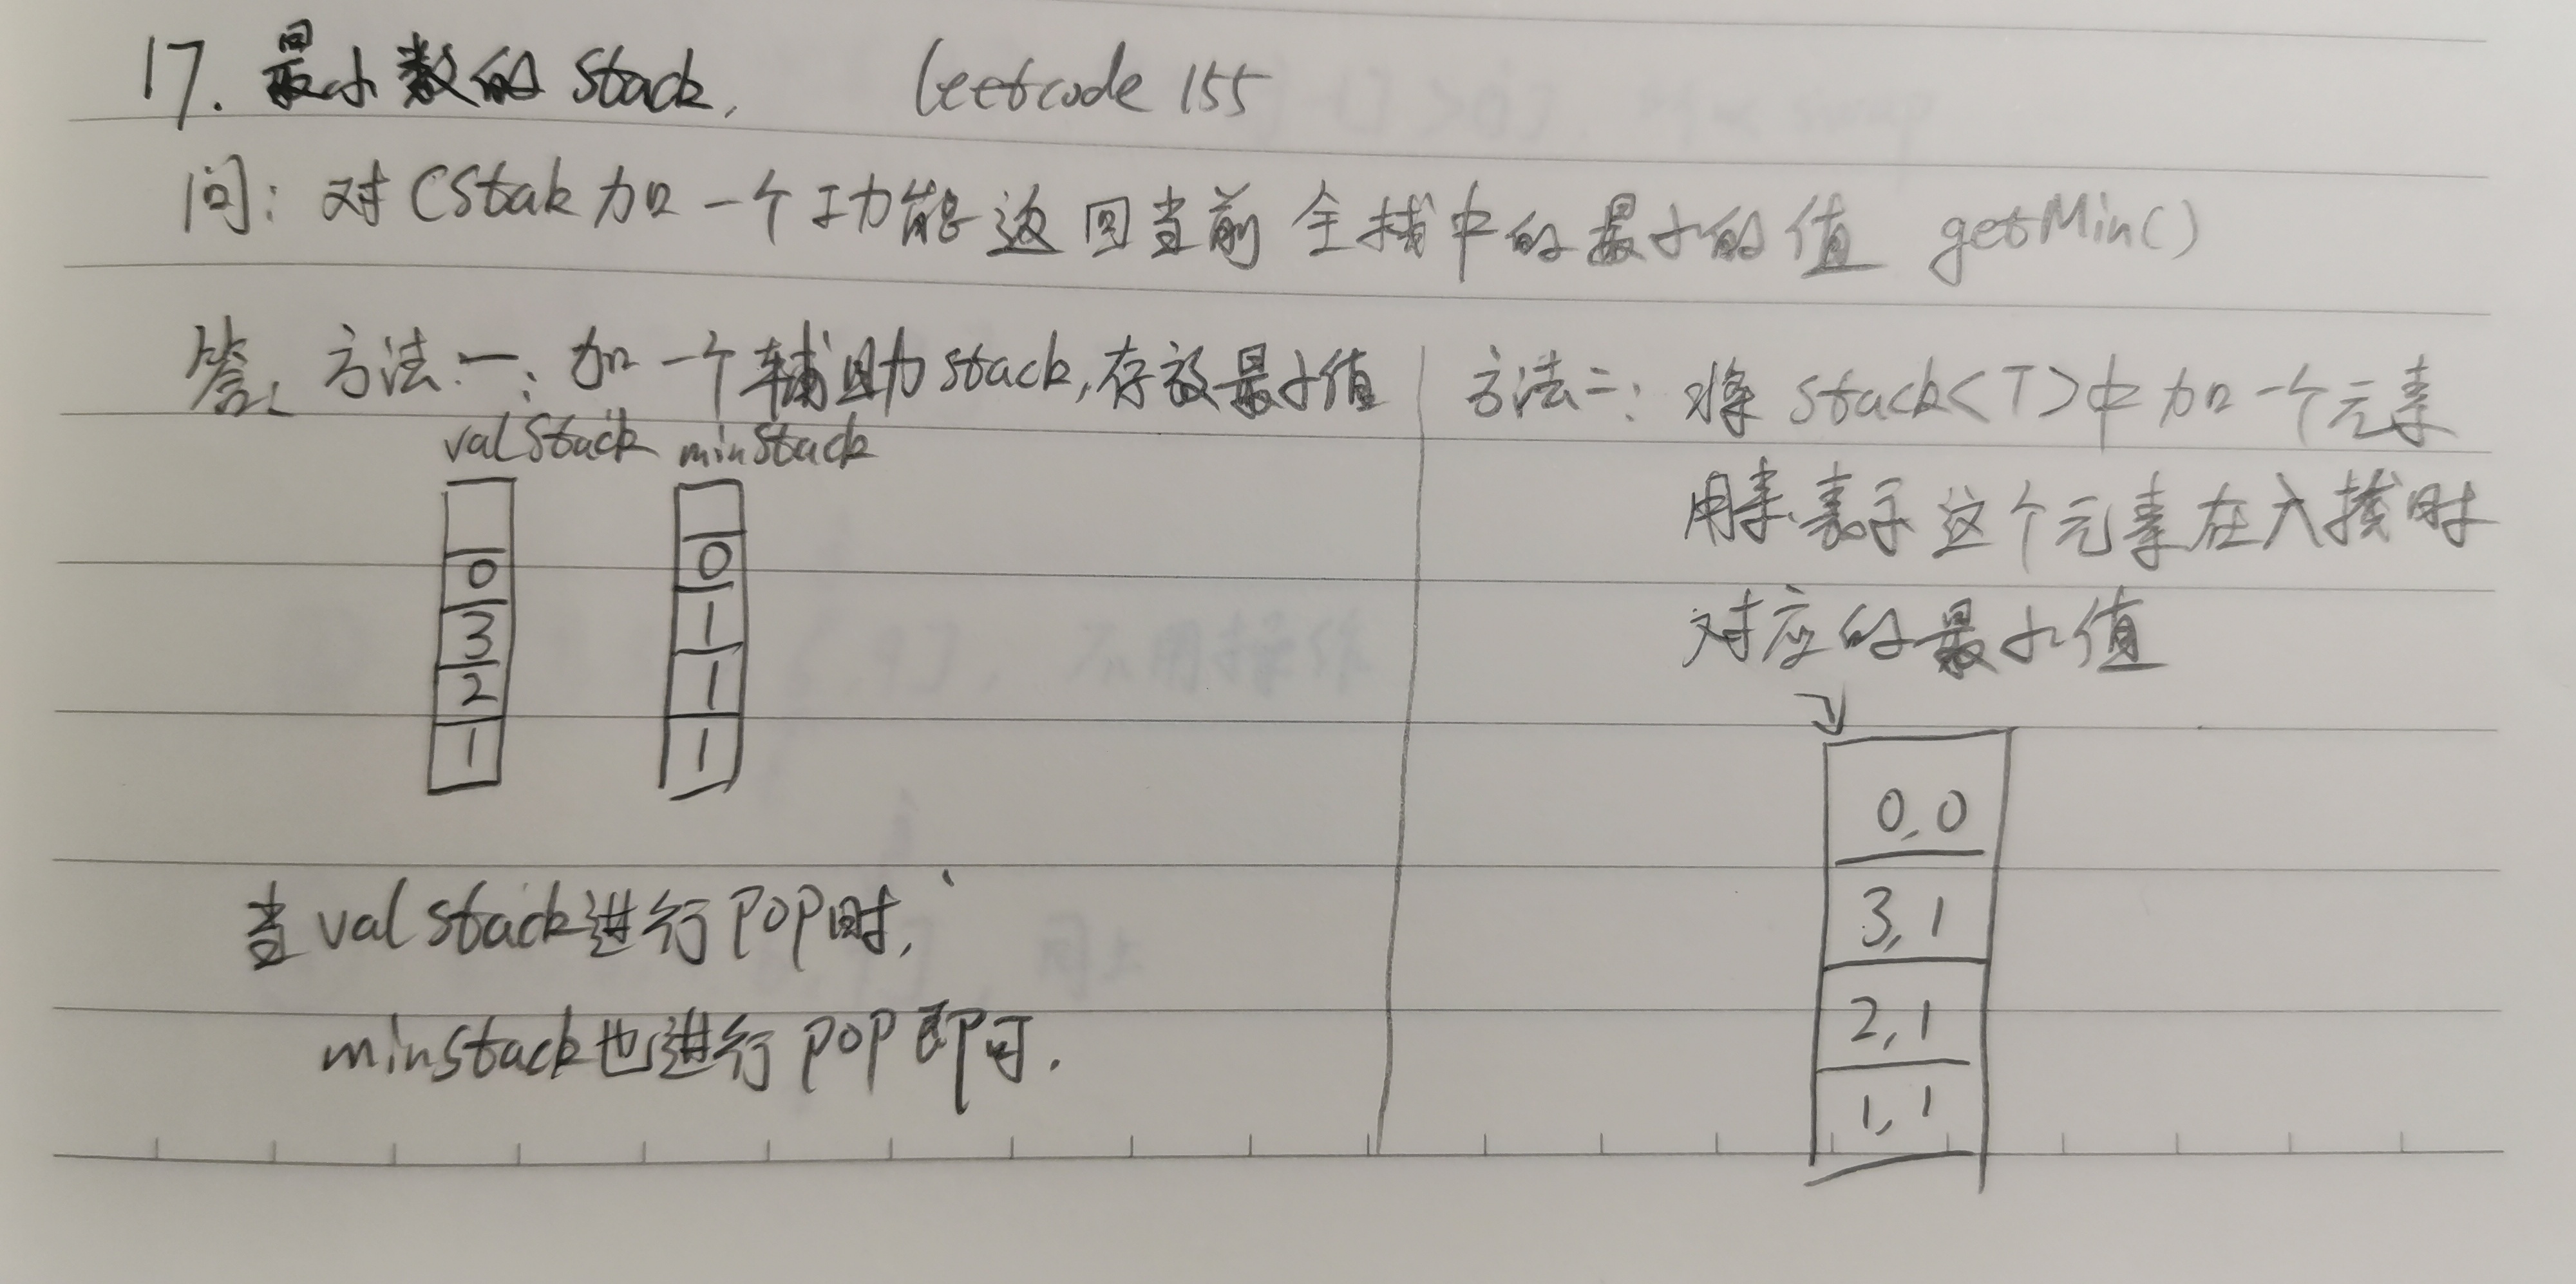 17. 最小数的 Stack, leetcode 155
问: 对 CStak 加一个功能返回当前全栈中的最小的值 getMin()
答、方法一: 加一个辅助stack,存放最小值
valStack minStack
0
3
2
1
0
1
1
1
当valstack进行pop时,
minstack也进行pop即可.
方法二: 将 stack<T>中加一个元素
用来表示这个元素在入栈时
对应的最小值
0,0
3,1
2,1
1,1